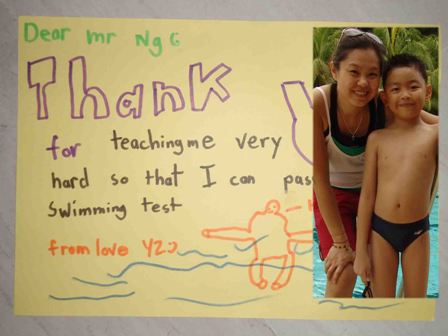 Dear mr Ng G
Thank
for teaching me very
hard so that I can pas
Swimming test
from love YZ:)